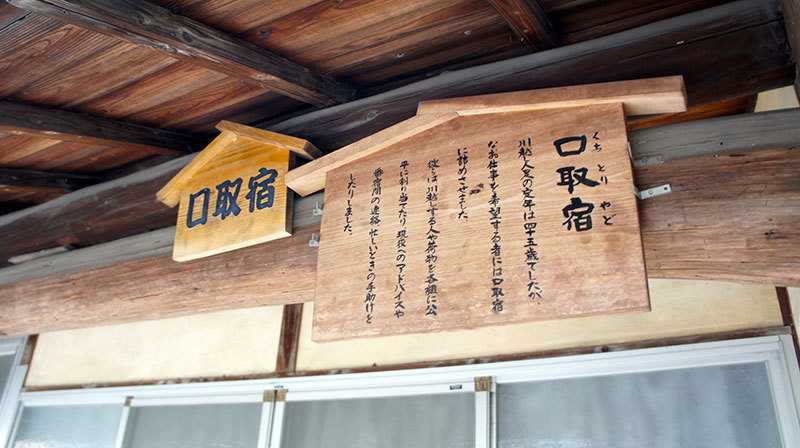 口取宿
くち とり やど
口取宿
川越人足の定年は四十五歳でしたが、
なお仕事を希望する者には口取宿
に詰めさせました。
彼らは川越しする人や荷物を各組に公
平に割り当てたり、現役へのアドバイスや
番宿間の連絡、忙しいときの手助けを
したりしました。